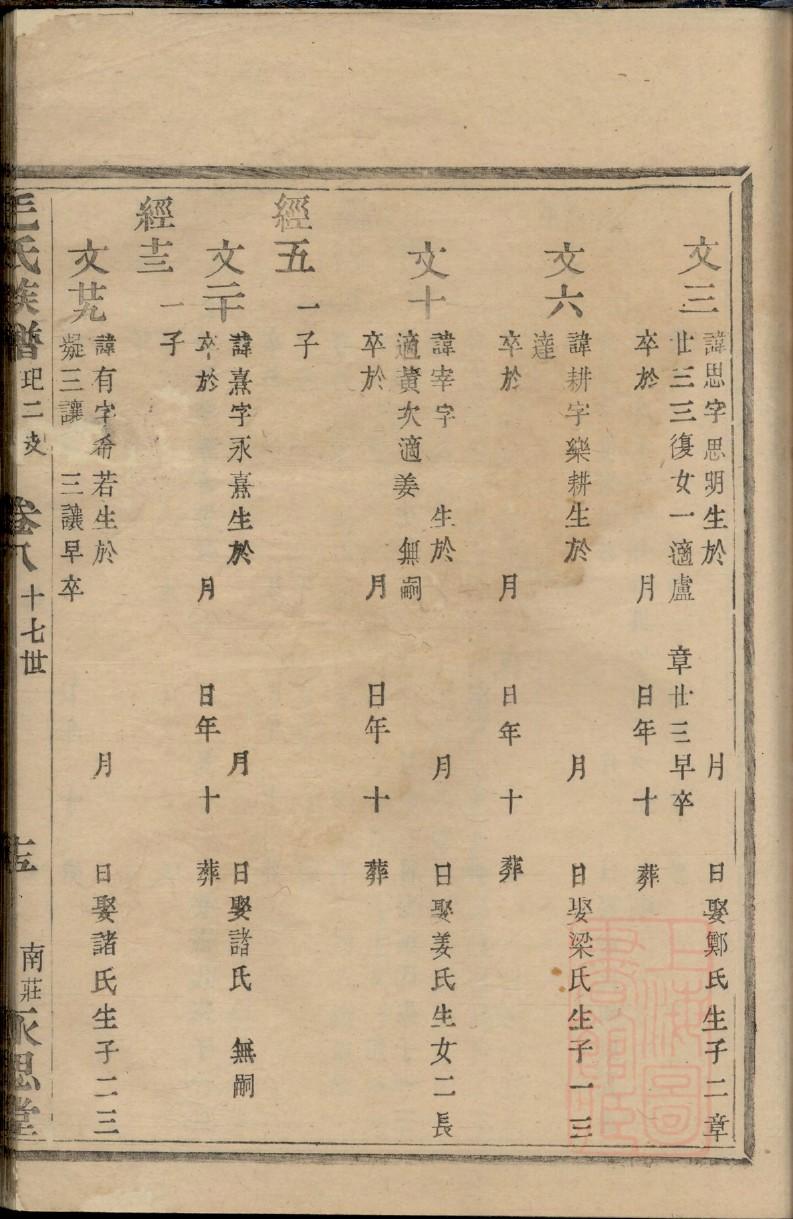 文三
諱思字思明生於 月 日娶鄭氏生子二章
廿三三復女一適盧 章廿三早卒
卒於 月 日年 十 葬
文六
諱耕字樂耕生於 月 日娶梁氏生子一三
達
卒於 月 日年 十 葬
文十
諱宰字 生於 月 日娶姜氏生女二長
適黄次適姜 無嗣
卒於 月 日年 十 葬
經五 一子
文二十
諱熹字永熹生於 月 日娶諸氏 無嗣
卒於 月 日年 十 葬
經十三 一子
文廿九
諱有字希若生於 月 日娶諸氏生子二三
凝三讓 三讓早卒
毛氏族譜 玘二支 卷八 十七世 南莊 永思堂
上海圖書館